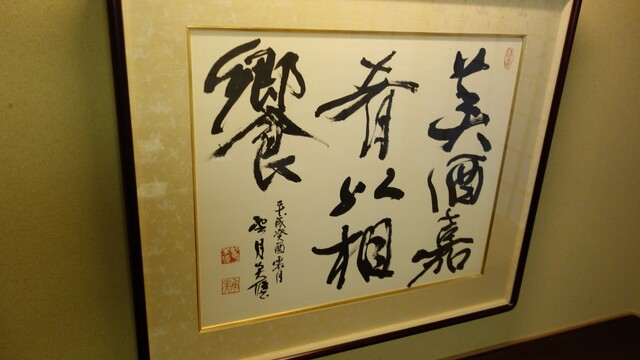 美酒嘉
肴以相
饗
平成癸酉霜月